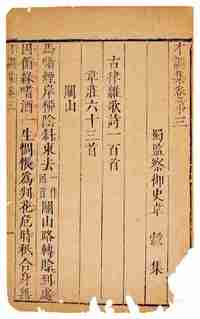 才調集卷第三
蜀監察御史韋 縠 集
古律雜歌詩一百首
韋莊六十三首
關山
馬嘶煙岸柳陰斜東去一作關山路轉賒到處
因循緣嗜酒一生惆悵為判花危時秖合身無
才調集卷三